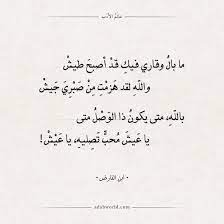 عالم الأدب
ما بالُ وقاري فيكِ قدْ أصبَحَ طيشْ
واللّهِ لقد هَزمْتِ مِنْ صَبْرِيَ جَيشْ
باللهِ، متى يكونُ ذا الوَصْلُ متى
يا عَيشَ مُحبٍّ تَصِليهِ، يا عَيْشْ!
- ابن الفارض -
adabworld.com